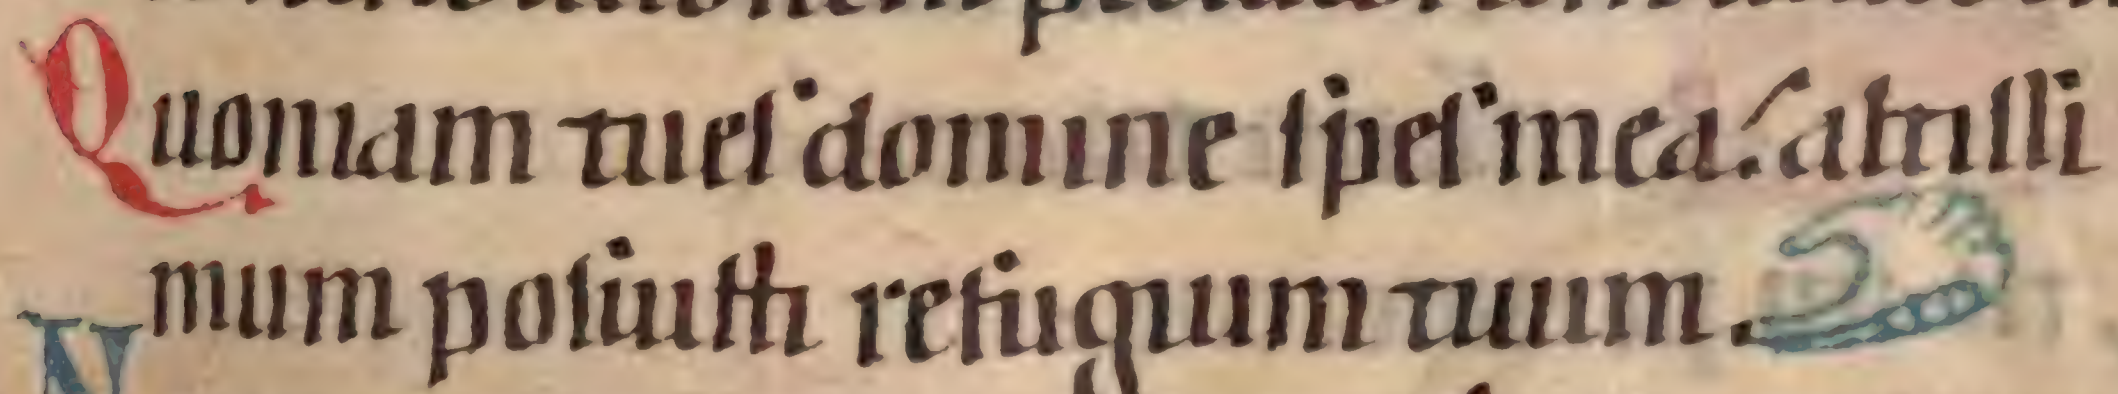 Quoniam tu es domine spes mea: altissi
mum posuisti refugium tuum.